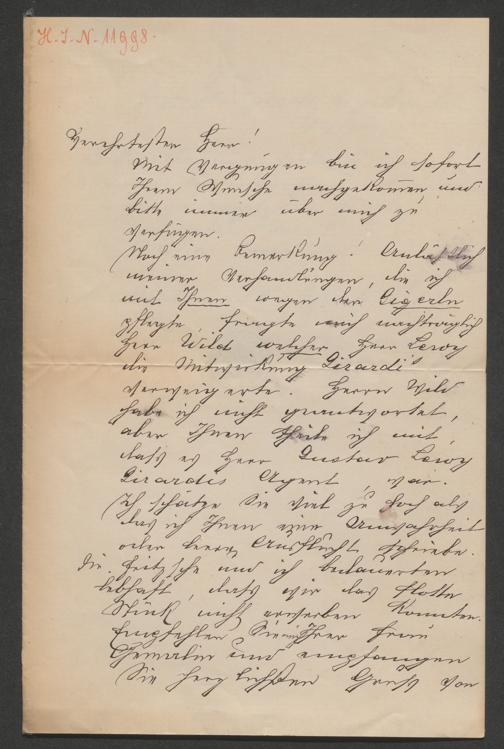 H.I.N. 11998.
Verehrtester Herr!
Mit Vergnügen bin ich sofort
Ihrem Wunsche nachgekommen und
bitte immer über mich zu
verfügen.
Noch eine Bemerkung! Anläßlich
meiner Verhandlungen, die ich
mit Ihnen wegen der Gigerln
pflegte, fragte mich nachträglich
Herr Wild welcher Herr Lewy
die Mitwirkung Girardi's
verweigerte. Herrn Wild
habe ich nicht geantwortet,
aber Ihnen theile ich mit,
dass es Herr Gustav Lewy
Girardis Agent, war.
Ich schätze Sie viel zu hoch als
das ich Ihnen eine Unwahrheit
oder leere Ausflucht schriebe.
Die Fritzsche und ich bedauerten
lebhaft, dass wir das flotte
Stück nicht erwerben konnten.
Empfehlen Sie mich Ihrer Frau
Gemalin und empfangen
Sie herzlichsten Gruss von